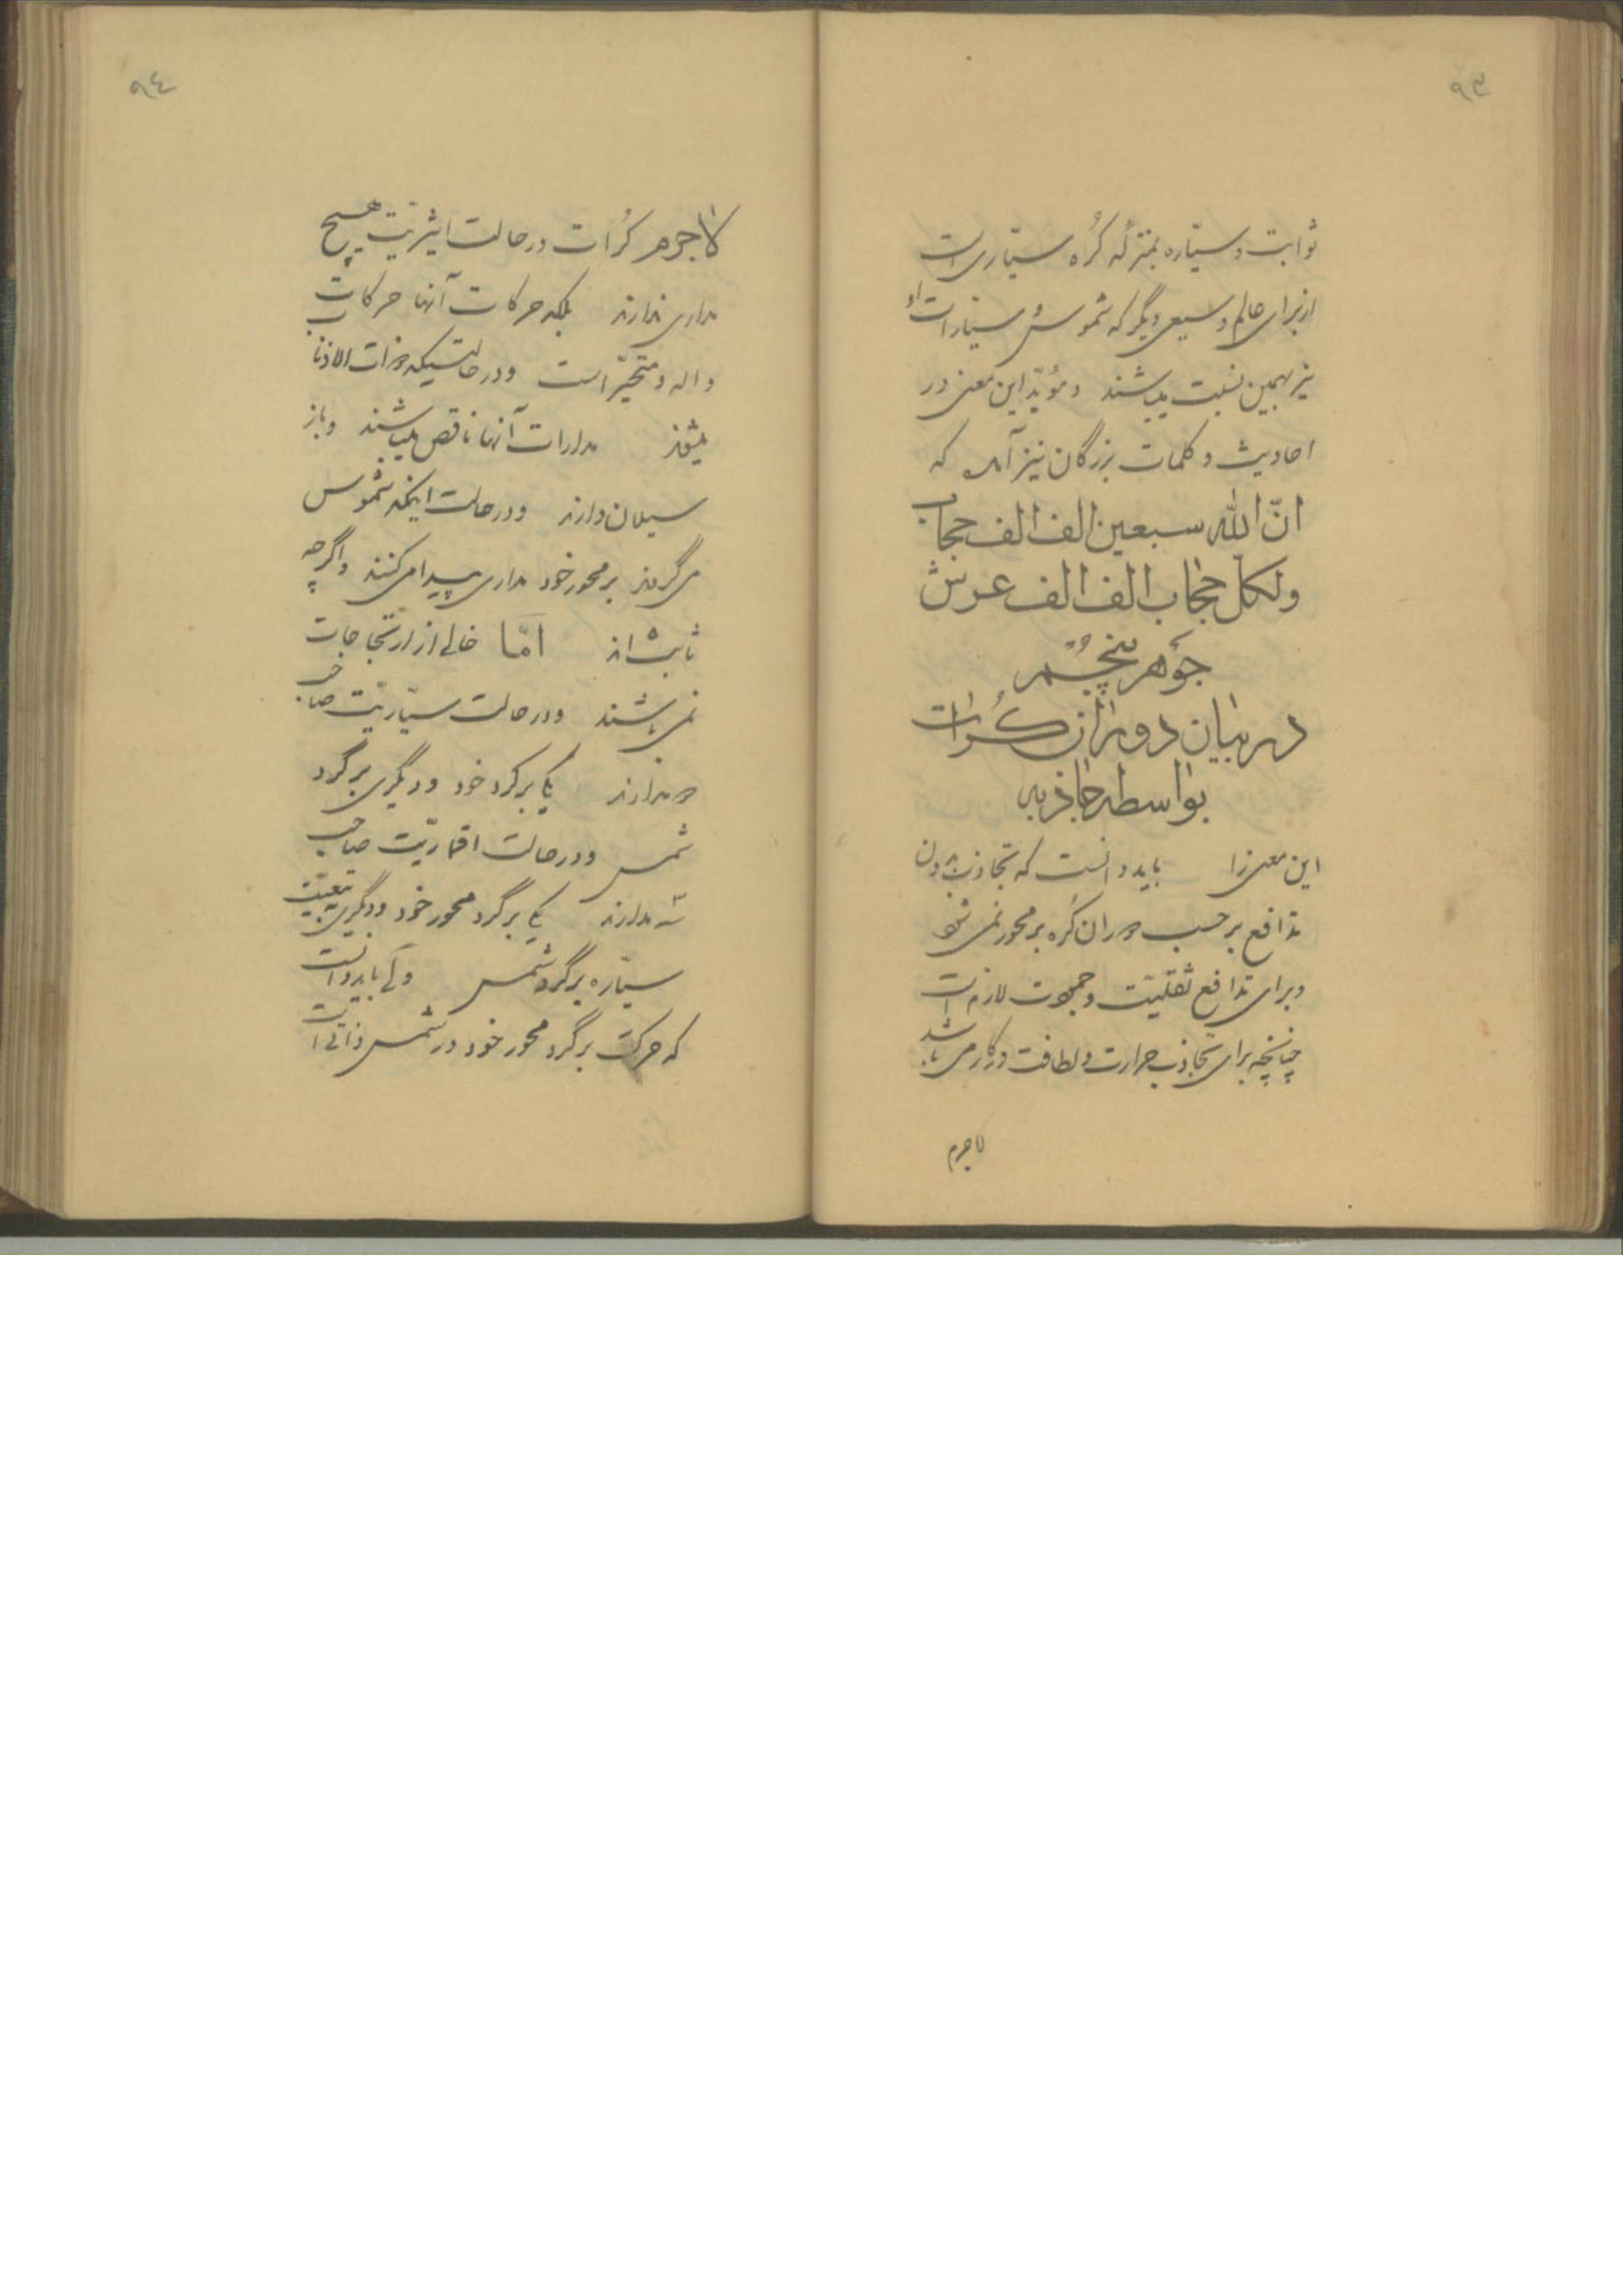 ٩٣
ثوابت و سیّاره بمنزلهٔ کُره سیّاری است
از برای عالم وسیعی دیگر که شموس و سیّارات او
نیز بهمین نسبت میباشند و مؤیّد این معنی در
احادیث و کلمات بزرگان نیز آمده که
انّ الله سبعین الف الف حجاب
ولکلّ حجاب الف الف عرش
جوهر پنجم
در بیان دوران کُرات
بواسطه جاذبه
این معنی را باید دانست که تجاذب بدون
تدافع بر حسب دوران کُره بر محور نمی شود
و برای تدافع ثقلیّت و جمودت لازم است
چنانچه برای تجاذب حرارت و لطافت در کار می باشد
لاجرم
٩٤
لاجرم کُرات در حالت اثیریّت هیچ
مداری ندارند بلکه حرکات آنها حرکات
واله و متحیّر است و در حالتیکه ذوات الاذناب
میشوند مدارات آنها ناقص میباشند و باز
سیلان دارند و در حالت اینکه شموس
می گردند بر محور خود مداری پیدا می کنند و اگرچه
ثابت اند امّا خالی از ارتجاجات
نمی باشند و در حالت سیّاریّت صاحب
دو مدارند یکی بر گرد خود و دیگری بر گرد
شمس و در حالت اقماریّت صاحب
سه مدارند یکی بر گرد محور خود و دیگری بتبعیّت
سیّاره بر گرد شمس ولی باید دانست
که حرکت بر گرد محور خود در شمس ذاتی است